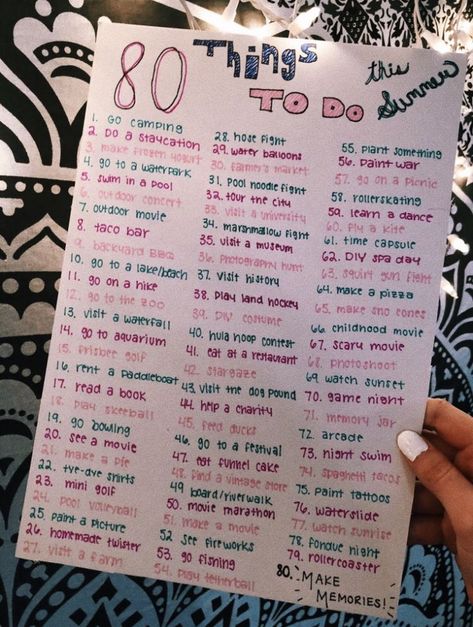 80 Things
TO DO
this
Summer
1. GO CAMPING
2. DO A STAYCATION
3. make frozen yogurt
4. go to a waterpark
5. swim in a pool
6. outdoor concert
7. outdoor movie
8. taco bar
9. backyard BBQ
10. go to a lake/beach
11. go on a hike
12. go to the zoo
13. visit a waterfall
14. go to aquarium
15. frisbee golf
16. rent a paddleboat
17. read a book
18. play skeeball
19. go bowling
20. see a movie
21. make a pie
22. tye-dye shirts
23. mini golf
24. pool volleyball
25. paint a picture
26. homemade twister
27. visit a farm
28. hose fight
29. water balloons
30. farmer's market
31. pool noodle fight
32. tour the city
33. visit a university
34. marshmallow fight
35. visit a museum
36. photography hunt
37. visit history
38. play land hockey
39. DIY costume
40. hula hoop contest
41. eat at a restaurant
42. stargaze
43. visit the dog pound
44. help a charity
45. feed ducks
46. go to a festival
47. eat funnel cake
48. find a vintage store
49. board/riverwalk
50. movie marathon
51. make a movie
52 see fireworks
53. go fishing
54. play tetherball
55. plant something
56. paint war
57. go on a picnic
58. rollerskating
59. learn a dance
60. fly a kite
61. time capsule
62. DIY spa day
63. squirt gun fight
64. make a pizza
65. make sno cones
66. childhood movie
67. scary movie
68. photoshoot
69. watch sunset
70. game night
71. memory jar
72. arcade
73. night swim
74. spaghetti tacos
75. paint tattoos
76. waterslide
77. watch sunrise
78. fondue night
79. rollercoaster
80. MAKE
MEMORIES!